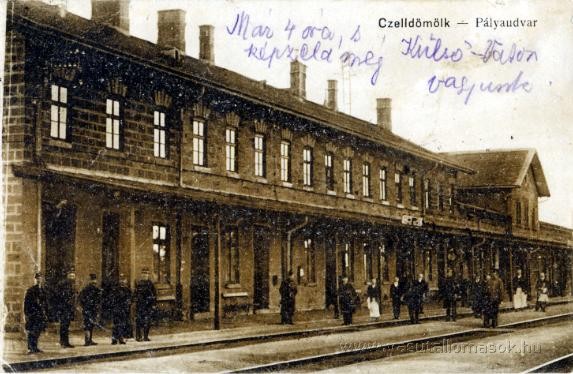 Czelldömölk — Pályaudvar
Már 4 óra, s
képzeld még
Külső Vaton
vagyunk.
www.vasutallomasok.hu